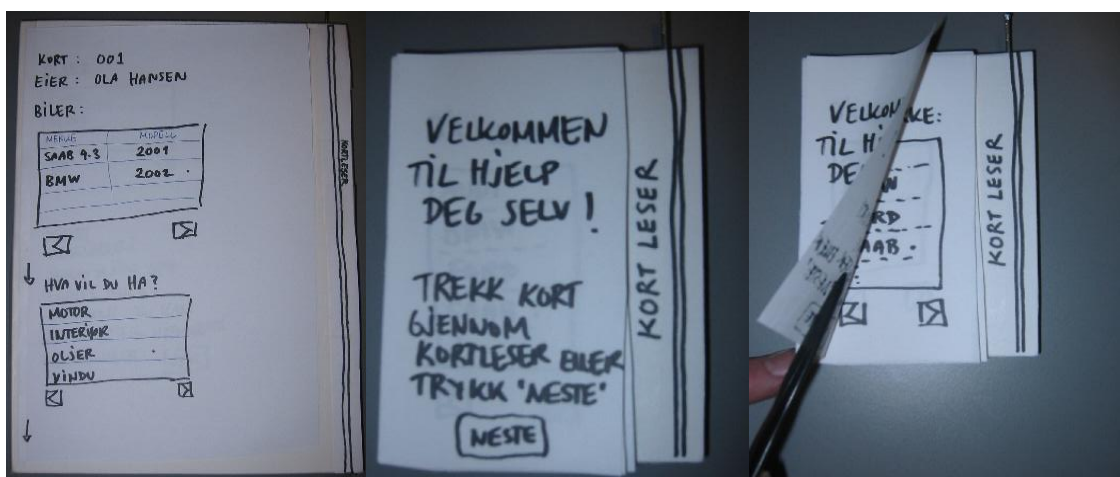 KORT : 001
EIER : OLA HANSEN
BILER :
MERKE MODELL
SAAB 9.3 2001
BMW 2002
HVA VIL DU HA?
MOTOR
INTERIØR
OLJER
VINDU
KORTLESER
VELKOMMEN
TIL HJELP
DEG SELV !
TREKK KORT
GJENNOM
KORTLESER ELLER
TRYKK "NESTE"
NESTE
KORT LESER
VELKO KE:
TIL HJ
DE
RD
AAB
KORT LESER